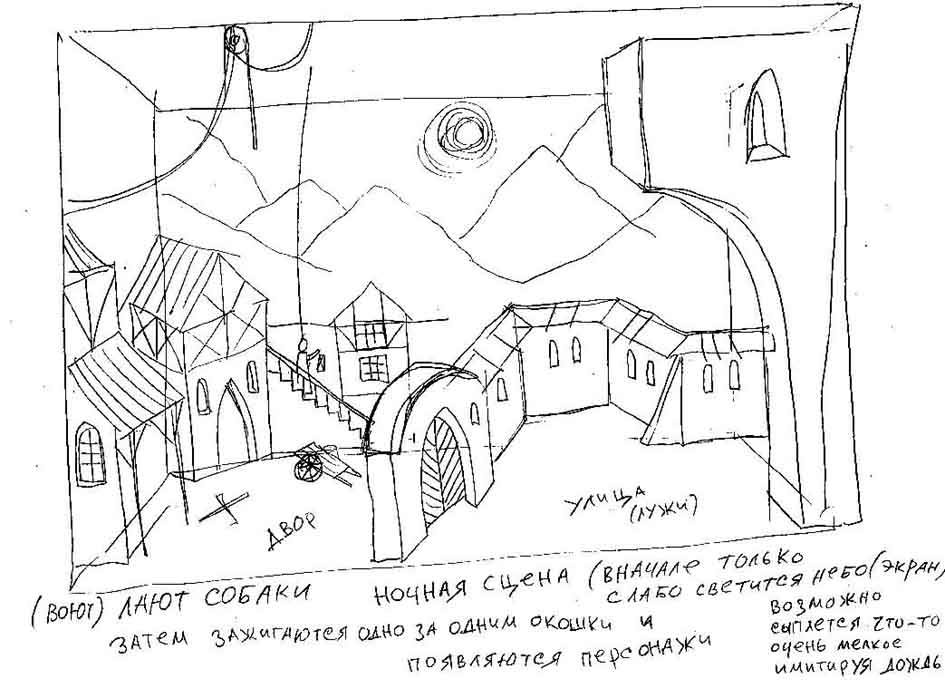 ДВОР
УЛИЦА
(ЛУЖИ)
(ВОЮТ) ЛАЮТ СОБАКИ
НОЧНАЯ СЦЕНА (ВНАЧАЛЕ ТОЛЬКО
СЛАБО СВЕТИТСЯ НЕБО (ЭКРАН)
ЗАТЕМ ЗАЖИГАЮТСЯ ОДНО ЗА ОДНИМ ОКОШКИ И
ПОЯВЛЯЮТСЯ ПЕРСОНАЖИ
ВОЗМОЖНО
СЫПЛЕТСЯ ЧТО-ТО
ОЧЕНЬ МЕЛКОЕ
ИМИТИРУЯ ДОЖДЬ